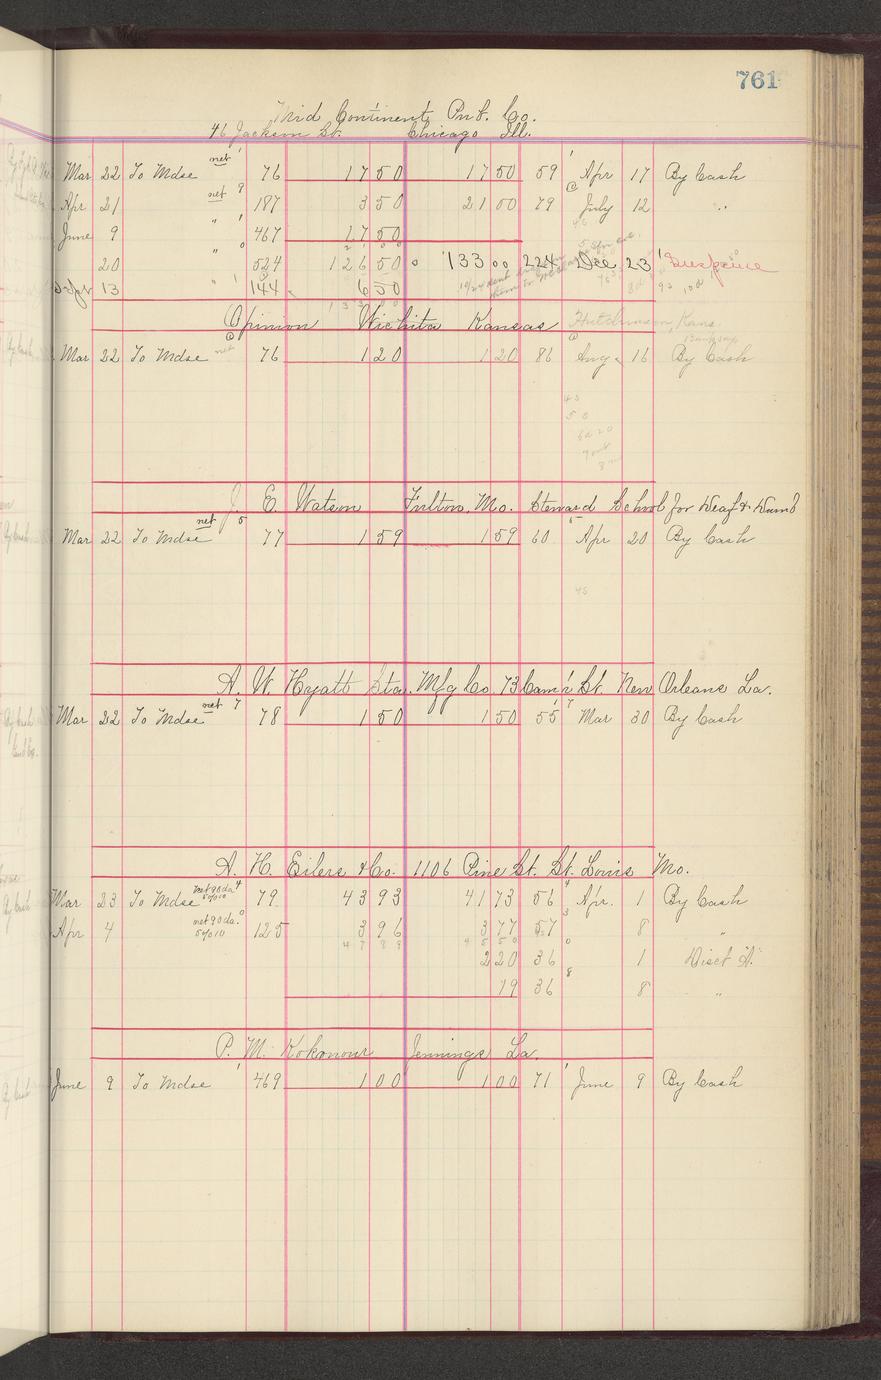 761
Mid Continent Pub. Co.
46 Jackson St. Chicago Ill.
Mar 22 To Mdse net 1 76 17 50 17 50 59 1 Apr 17 By Cash
Apr 21 " net 9 187 3 50 21 00 79 July 12 "
June 9 " 1 467 17 50
20 " 0 524 126 50 133 00 224 Dec 23 Suspence
Sept 13 " 1 144 6 50
133 00
Opinion Wichita Kansas Hutchinson, Kans.
Mar 22 To Mdse net 76 1 20 1 20 86 Aug 16 By Cash
J. E. Watson Fulton, Mo. Steward School for Deaf & Dumb
Mar 22 To Mdse net 5 77 1 59 1 59 60 5 Apr 20 By Cash
A. W. Hyatt Sta. Mfg Co. 73 Cam'r St. New Orleans La.
Mar 22 To Mdse net 7 78 1 50 1 50 55 7 Mar 30 By Cash
A. H. Eilers & Co. 1106 Pine St. St. Louis Mo.
Mar 23 To Mdse net 90 da. 5% 10 4 79 43 93 41 73 56 4 Apr. 1 By Cash
Apr 4 net 90 da. 5% 10 0 125 3 96 3 77 57 3 8 "
47 89 45 50
2 20 36 0 1 Disct "A"
19 36 8 8 "
P. M. Kokonour Jennings La.
June 9 To Mdse 1 469 1 00 1 00 71 1 June 9 By Cash